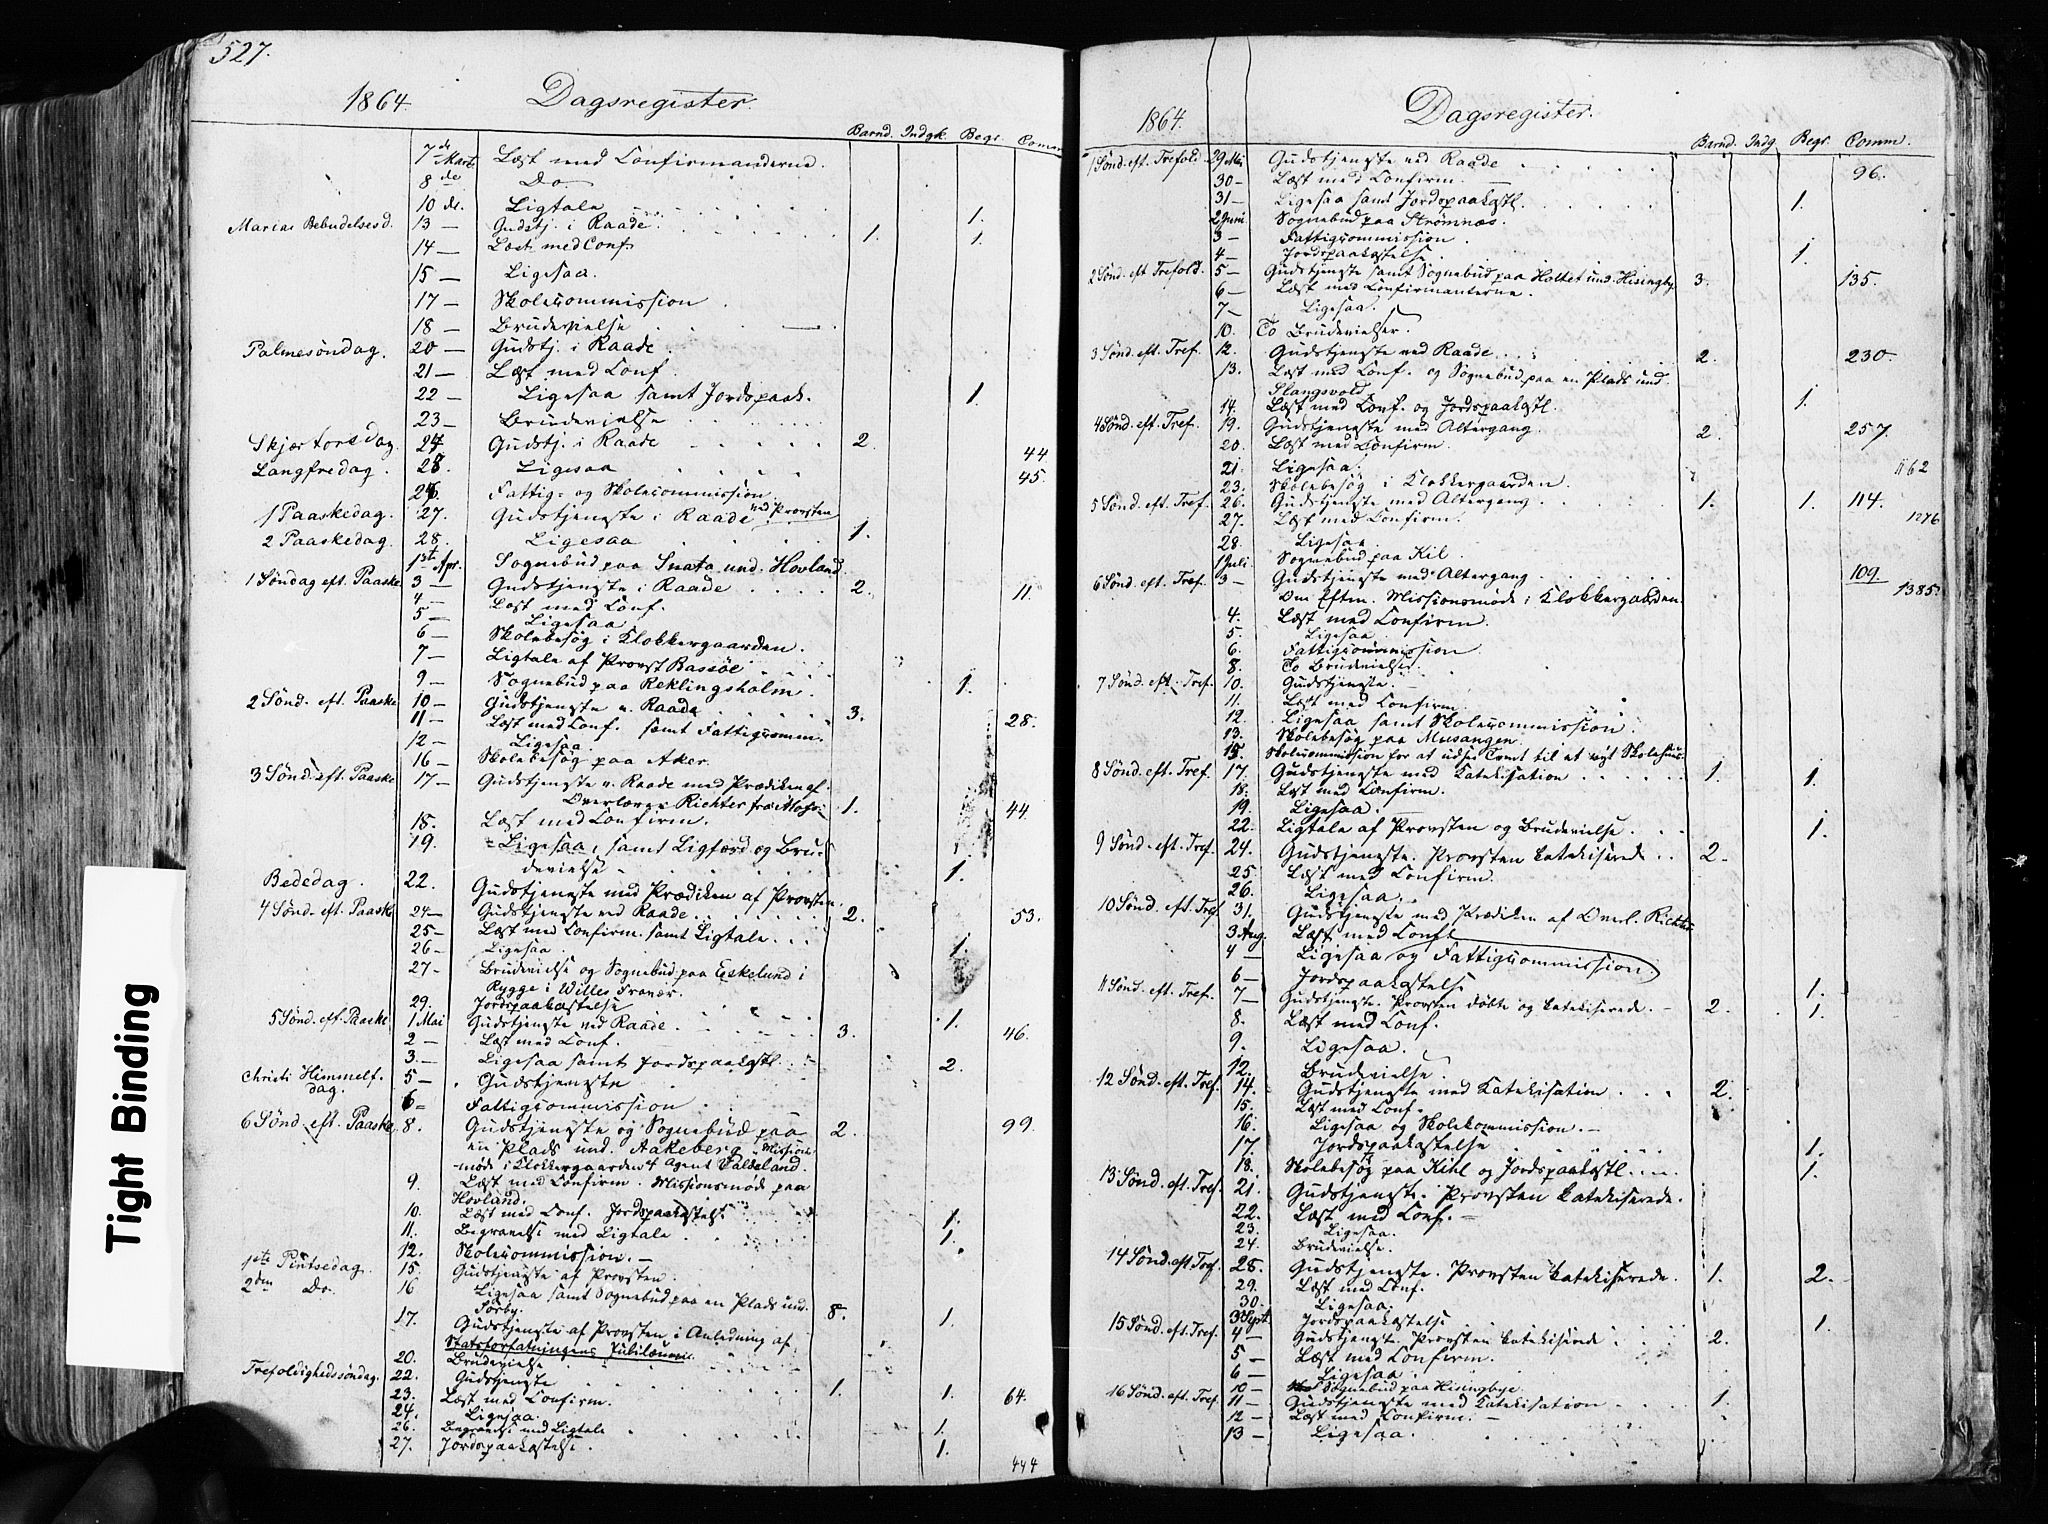 527.
1864. Dagsregister.
Barnd. Indgk. Begr. Comm
7de Marts Læst med Confirmanderne.
8de Do.
10 de. Ligtale 1.
Mariæ Bebudelsesd. 13 — Gudstj. i Raade. 1. 1.
14 — Læst med Conf.
15 — Ligesaa.
17 — Skolecommission
18 — Brudevielse
Palmesöndag. 20 — Gudstj. i Raade.
21 — Læst med Conf.
22 — Ligesaa samt Jordspaak. 1.
23 — Brudevielse
Skjærtorsdag 24. Gudstj. i Raade 2. 44
Langfredag. 25. Ligesaa 45.
26. Fattig- og Skolecommission
1 Paaskedag. 27. Gudstjeneste i Raade ved Provsten
2 Paaskedag. 28. Ligesaa 1.
1st Apr. Sognebud paa Snata und. Hovland.
1 Söndag eft. Paaske 3 — Gudstjeneste i Raade 2. 11.
4 — Læst med Conf.
5 — Ligesaa
6 — Skolebesøg i Klokkergaarden.
7 — Ligtale af Provst Bassøe
9 — Sognebud paa Reklingsholm. 1.
2 Sönd. eft. Paaske 10 — Gudstjeneste v. Raade 3. 28.
11 — Læst med Conf. samt Fattigcomm.
12 — Ligesaa.
16 — Skolebesøg paa Aker.
3 Sönd. eft. Paaske 17 — Gudstjeneste v. Raade med Prædiken af
Overlærer Richter fra Moss. 1. 44.
18. Læst med Confirm.
19. Ligesaa, samt Ligfærd og Bru-
devielse 1.
Bededag. 22. Gudstjeneste med Prædiken af Provsten.
4 Sönd. eft. Paaske 24 — Gudstjeneste ved Raade 2. 53.
25 — Læst med Confirm. samt Ligtale.
26 — Ligesaa 1.
27 — Brudevielse og Sognebud paa Eskelund i
Rygge i Willes Fravær.
29. Jordspaakastelse
5 Sönd. eft. Paaske 1 Mai Gudstjeneste ved Raade 3. 1. 46.
2 — Læst med Conf.
3 — Ligesaa samt Jordspaakastl. 2.
Christi Himmelf.
dag. 5 — Gudstjeneste
6 — Fattigcommission
6 Sönd. eft. Paaske 8. Gudstjeneste og Sognebud paa 2. 99.
en Plads und. Aakeberg Missions-
møde i Klokkergaarden af Agent Valdeland.
9. Læst med Confirm. Missionsmøde paa
Hovland.
10. Læst med Conf. Jordspaakastelse 1.
11. Begravelse med Ligtale 1.
12. Skolecommission. —
1ste Pintsedag. 15. Gudstjeneste af Provsten.
2den Do. 16 Ligesaa samt Sognebud paa en Plads und.
Sørby. 8.
17. Gudstjeneste af Provsten i Anledning af 1.
Statsforfatningens Jubilæum.
20. Brudevielse
Trefoldighedssöndag. 22. Gudstjeneste 1. 1. 64.
23. Læst med Confirm.
24. Ligesaa.
26. Begravelse med Ligtale 1.
27. Jordspaakastelse. 1.
444
1864. Dagsregister.
Barnd. Indg. Begr. Comm.
1 Sönd. eft. Trefold. 29 Mai Gudstjeneste ved Raade 96.
30 — Læst med Confirm. —
31 — Ligesaa samt Jordspaakastl. 1.
2 Juni Sognebud paa Strømnæs.
3 — Fattigcommission
4 — Jordspaakastelse. 1.
2 Sönd. eft Trefold. 5 — Gudstjeneste samt Sognebud paa Holtet und. Hisingby. 3. 135.
6 — Læst med Confirmanterne.
7 — Ligesaa.
10. To Brudevielser.
3 Sönd. eft. Tref. 12. Gudstjeneste ved Raade 2. 230.
13. Læst med Conf. og Sognebud paa en Plads und.
Slangsvold
14. Læst med Conf. og Jordspaakastl. 1.
4 Sönd. eft. Tref. 19. Gudstjeneste med Altergang 2. 257.
20. Læst med Confirm.
21. Ligesaa. 1162
23. Skolebesøg i Klokkergaarden.
5 Sönd. eft. Tref. 26. Gudstjeneste med Altergang 1. 1. 114.
27. Læst med Confirm. 1276
28. Ligesaa
1 Juli. Sognebud paa Kil.
6 Sönd. eft. Tref. 3 — Gudstjeneste med Altergang 109
Om Eftm. Missionsmøde i Klokkergaarden. 1385.
4. Læst med Confirm.
5. Ligesaa
6. Fattigcommission
8. To Brudevielser.
7 Sönd. eft. Tref. 10. Gudstjeneste.
11. Læst med Confirm.
12. Ligesaa samt Skolecommission.
13. Skolebesøg paa Musangen.
15. Skolecommission for at udsee Tomt til et nyt Skolehuus.
8 Sönd. eft. Tref. 17. Gudstjeneste med Katekisation 1. 1.
18. Læst med Confirm.
19. Ligesaa.
22. Ligtale af Provsten og Brudevielse. 1.
9 Sönd. eft. Tref. 24. Gudstjeneste. Provsten katekiserede 2.
25. Læst med Confirm.
26. Ligesaa.
10 Sönd. eft. Tref 31. Gudstjeneste med Prædiken af Overl. Richter
3 Aug. Læst med Conf.
4 — Ligesaa og Fattigcommission.
6 — Jordspaakastelse 1.
11 Sönd. eft. Tref. 7 — Gudstjeneste. Provsten døbte og katekiserede. 2. 1.
8. Læst med Conf.
9. Ligesaa.
12. Brudevielse.
12 Sönd. eft. Tref. 14. Gudstjeneste med Katekisation 2.
15. Læst med Conf.
16. Ligesaa og Skolekommission. —
17. Jordspaakastelse 1.
18. Skolebesøg paa Kihl og Jordspaakastl. 1.
13 Sönd. eft. Tref. 21. Gudstjeneste. Provsten katekiserede.
22. Læst med Conf. —
23. Ligesaa.
24. Brudevielse.
14 Sönd. eft Tref. 28. Gudstjeneste. Provsten katekiserede. 1. 2.
29. Læst med Conf.
30. Ligesaa.
3 Sept. Jordspaakastelse 1.
15 Sönd. eft. Tref. 4 — Gudstjeneste. Provsten katekiserede 2.
5 — Læst med Confirm.
6 — Ligesaa.
10 — Sognebud paa Hisingbye.
16 Sönd. eft. Tref. 11 — Gudstjeneste med Katekisation 1.
12 — Læst med Confirm. —
13 — Ligesaa.
Tight Binding